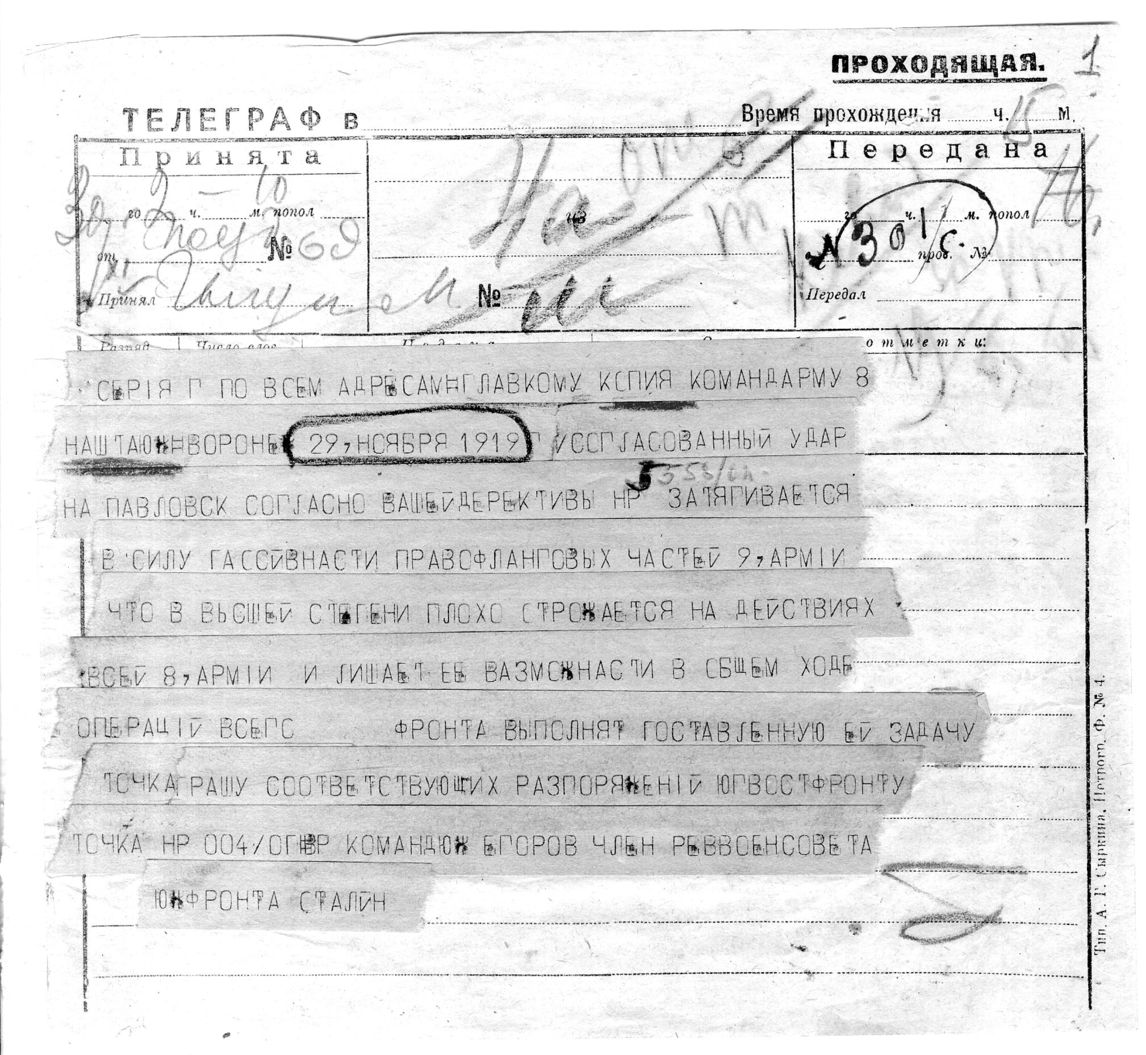 ПРОХОДЯЩАЯ. 1
ТЕЛЕГРАФ в Время прохождения ч. 15 м.
Принята Передана
30 го 2 ч. 10 м. попол из го ч. м. попол
от № 69 N 301/с. пров. №
Принял № Передал
Разряд Число слов отметки:
СЕРІЯ Г ПО ВСЕМ АДРЕСАМНГЛАВКОМУ КСПИЯ КОМАНДАРМУ 8
НАШТАЮЖНВОРОНЕЖ 29, НСЯБРЯ 1919 Г УСОГЛАСОВАННЫЙ УДАР
5358/оп.
НА ПАВЛОВСК СОГЛАСНО ВАШЕЙДЕРЕКТИВЫ НР ЗАТЯГИВАЕТСЯ
В СИЛУ ГАССЙВНАСТИ ПРАВОФЛАНГОВЫХ ЧАСТЕЙ 9, АРМІИ
ЧТО В ВЬСШЕЙ СТЕГЕНИ ПЛОХО СТРОЖАЕТСЯ НА ДЕЙСТВИЯХ
ВСЕЙ 8, АРМІИ И ЛИШАЕТ ЕЕ ВАЗМОЖНАСТИ В СБЩЕМ ХОДЕ
ОПЕРАЦІЙ ВСЕГС ФРОНТА ВЫПОЛНЯТ ГОСТАВЛЕННУЮ ЕЙ ЗАДАЧУ
ТОЧКА ГРАШУ СООТВЕТСТВУЮЩИХ РАЗПОРЯЖЕНІЙ ЮГВОСТФРОНТУ
ТСЧКА НР 004/ОГЖР КОМАНДЮЖ ЕГОРОВ ЧЛЕН РЕВВОЕНСОВЕТА
ЮЖФРОНТА СТАЛЙН
Тип. А. Г. Сыркина, Петрогр. Ф. № 4.